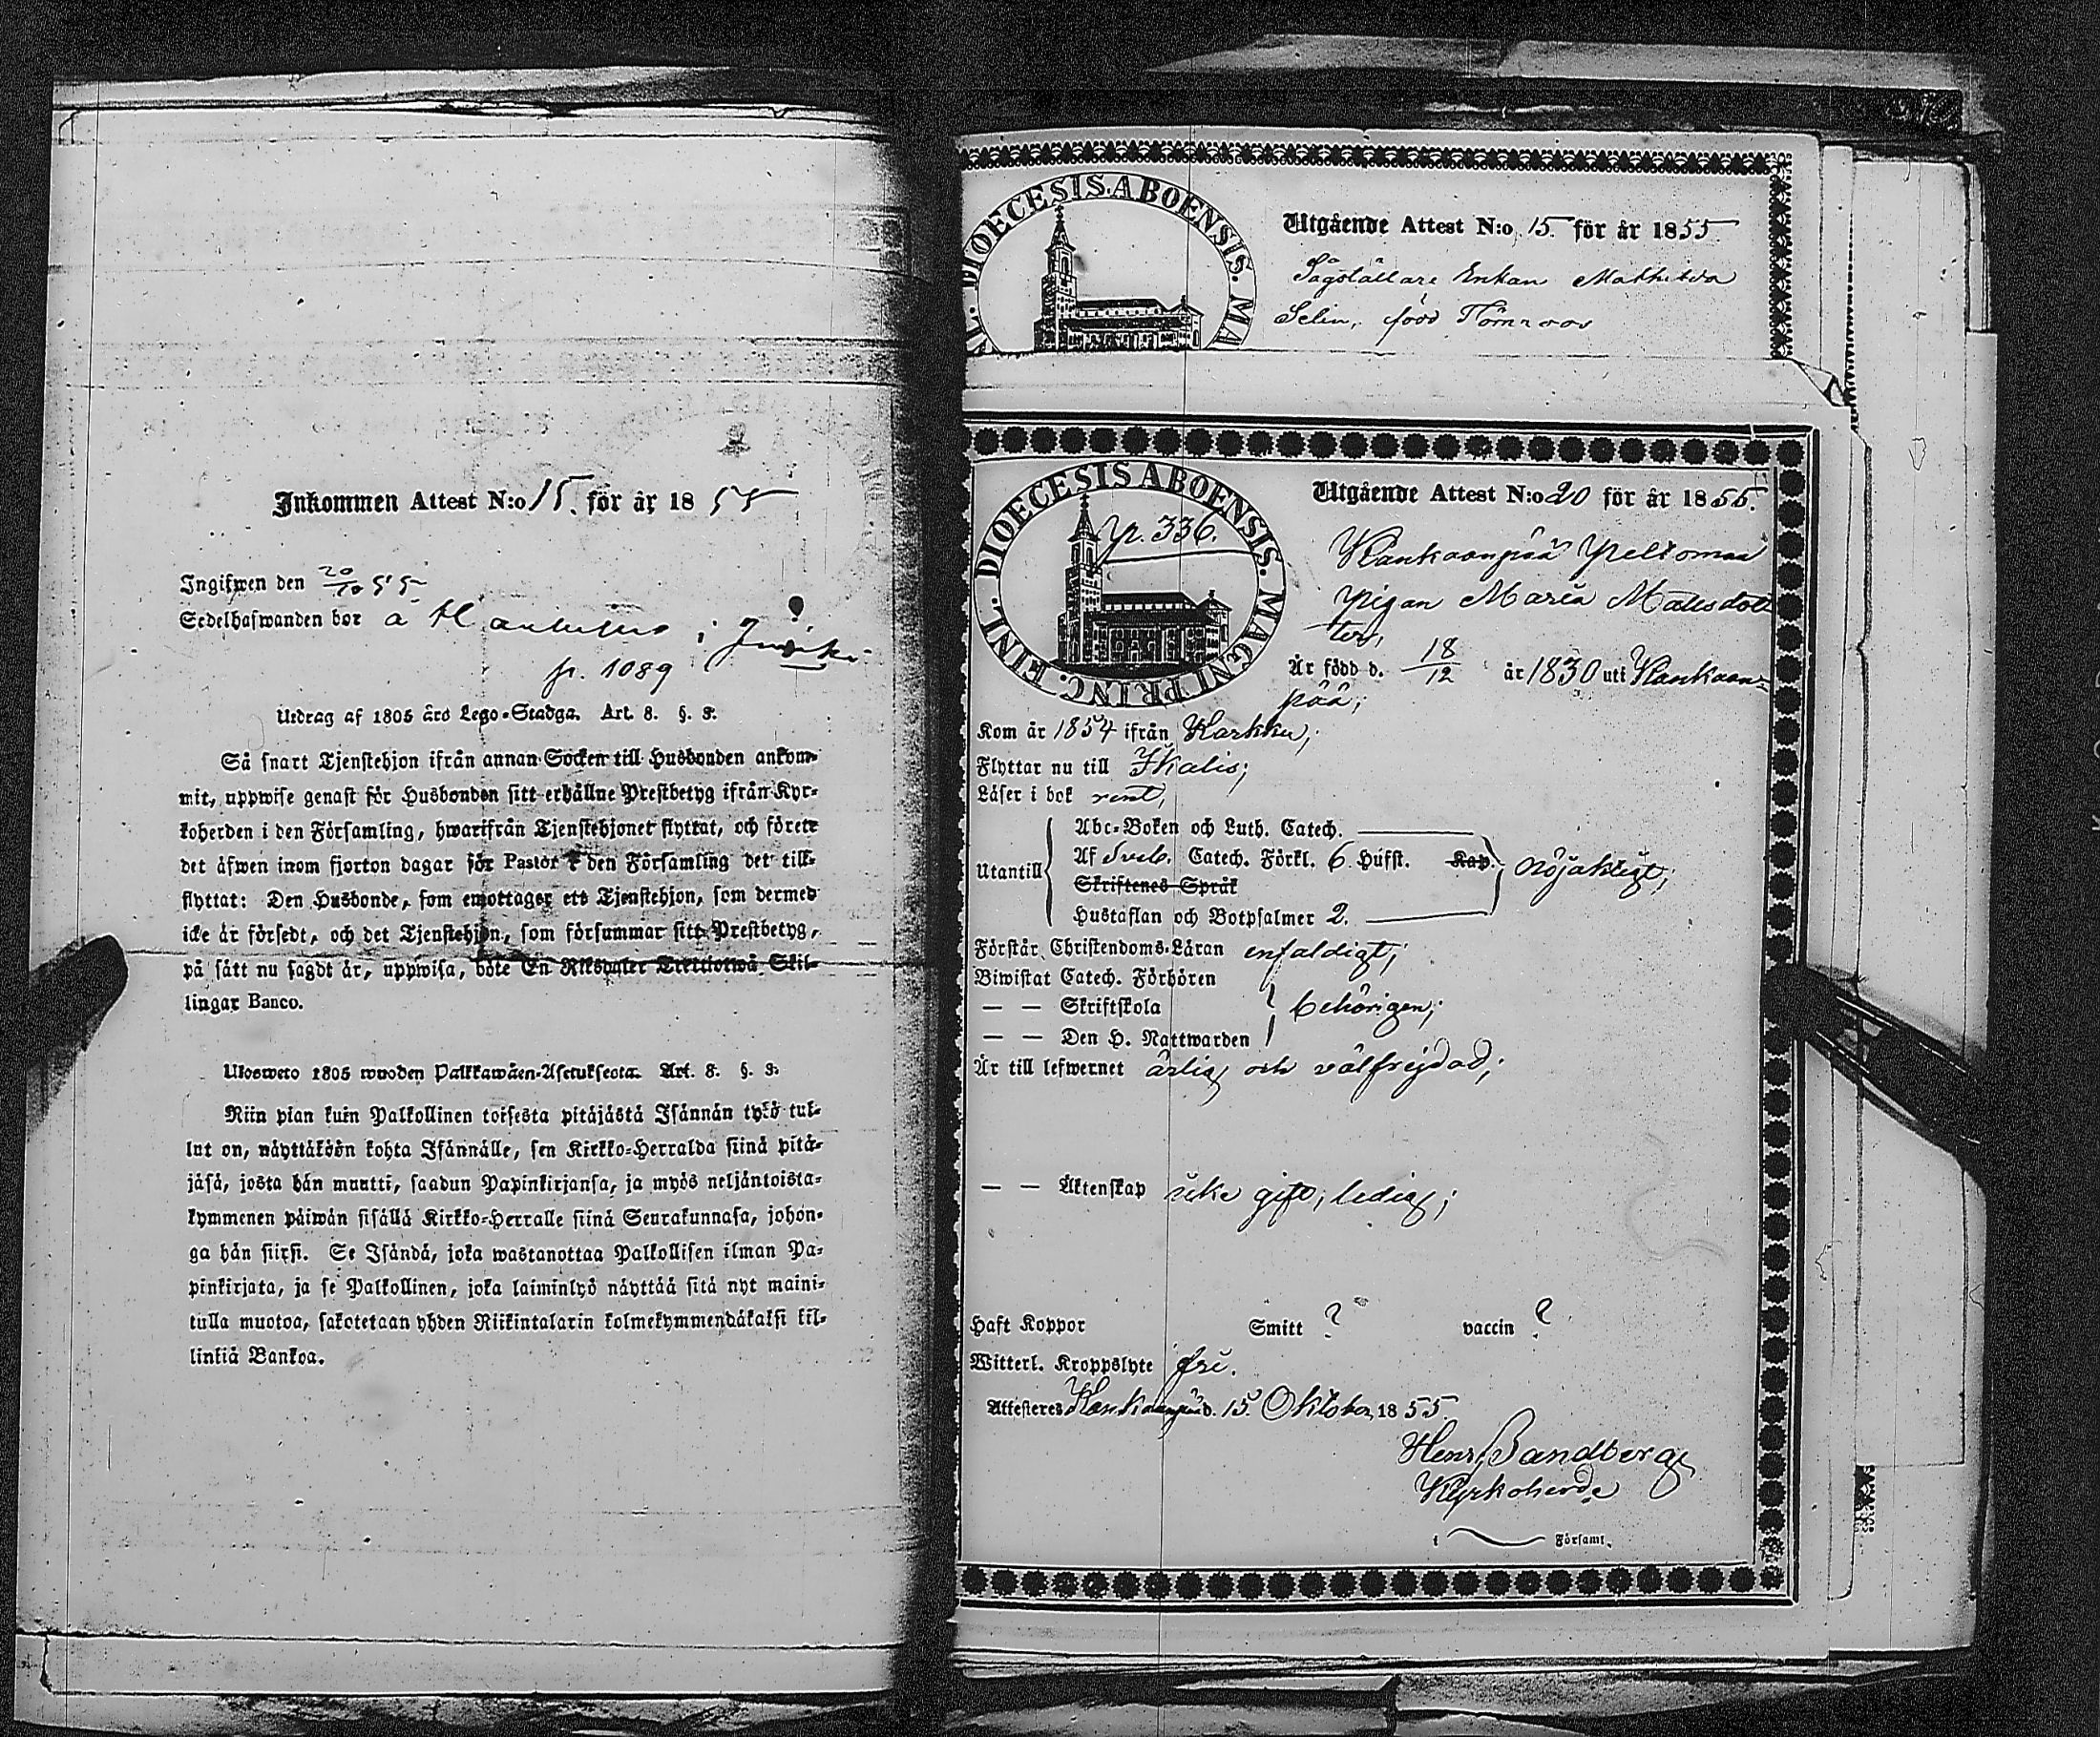 Inkommen Attest N:o 15. för år 1855
Ingifwen den 20/10 55
Sedelhafwanden bor å
p. 1089
Utdrag af 1805 års Lego-Stadga. Art. 8. §. 3.
Så snart Tjenstehjon ifrån annan Socken till Husbonden ankom-
mit, uppwise genast för Husbonden sitt erhållne Prestbetyg ifrån Kyr-
koherden i den Församling, hwarifrån Tjenstehjonet flyttat, och förete
det åfwen inom fjorton dagar för Pastor i den Församling det till-
flyttat: Den Husbonde, som emottager ett Tjenstehjon, som dermed
icke är försedt, och det Tjenstehjon, som försummar sitt Prestbetyg,
på sätt nu sagdt är, uppwisa, böte En Riksdaler Trettiotwå Skil-
lingar Banco.
Ulosweto 1805 wuoden Palkkawäen-Asetuksesta. Art. 8. §. 3.
Niin pian kuin Palkollinen toisesta pitäjästä Isännän tykö tul-
lut on, näyttäköön kohta Isännälle, sen Kirkko-Herralda siinä pitä-
jäsä, josta hän muutti, saadun Papinkirjansa, ja myös neljäntoista-
kymmenen päiwän sisällä Kirkko-Herralle siinä Seurakunnasa, johon-
ga hän siirsi. Se Isändä, joka wastanottaa Palkollisen ilman Pa-
pinkirjata, ja se Palkollinen, joka laiminlyö näyttää sitä nyt maini-
tulla muotoa, sakotetaan yhden Riikintalarin kolmekymmendäkaksi kil-
linkiä Bankoa.
DIOECESIS ABOENSIS. MA
Utgående Attest N:o 15. för år 1855
Enkan Mathilda
Selin, född Törnroos
FINL. DIOECESIS ABOENSIS. MAGNI PRINC.
p. 336.
Utgående Attest N:o 20 för år 1855.
Kankaanpää
Pigan Maria Matsdot
ter,
Är född d. 18/12 år 1830 uti Kankaan-
pää;
Kom år 1854 ifrån Karkku;
Flyttar nu till Ikalis;
Läser i bok rent,
Utantill
Abc-Boken och Luth. Catech.
Af Sveb. Catech. Förkl. 6. Hufst. Kap.
nöjaktigt;
Skriftenes Språk
Hustaflan och Botpsalmer 2.
Förstår Christendoms-Läran enfaldigt;
Biwistat Catech. Förhören
— — Skriftskola
behörigen;
— — Den H. Nattwarden
Är till lefwernet ärlig och välfrejdad;
— — Äktenskap icke gift, ledig;
Haft Koppor Smitt ? vaccin ?
Witterl. Kroppslyte fri.
Attesteres Kankaanpää d. 15. Oktober 1855.
Henr. Sandberg
Kyrkoherde
i Församl.